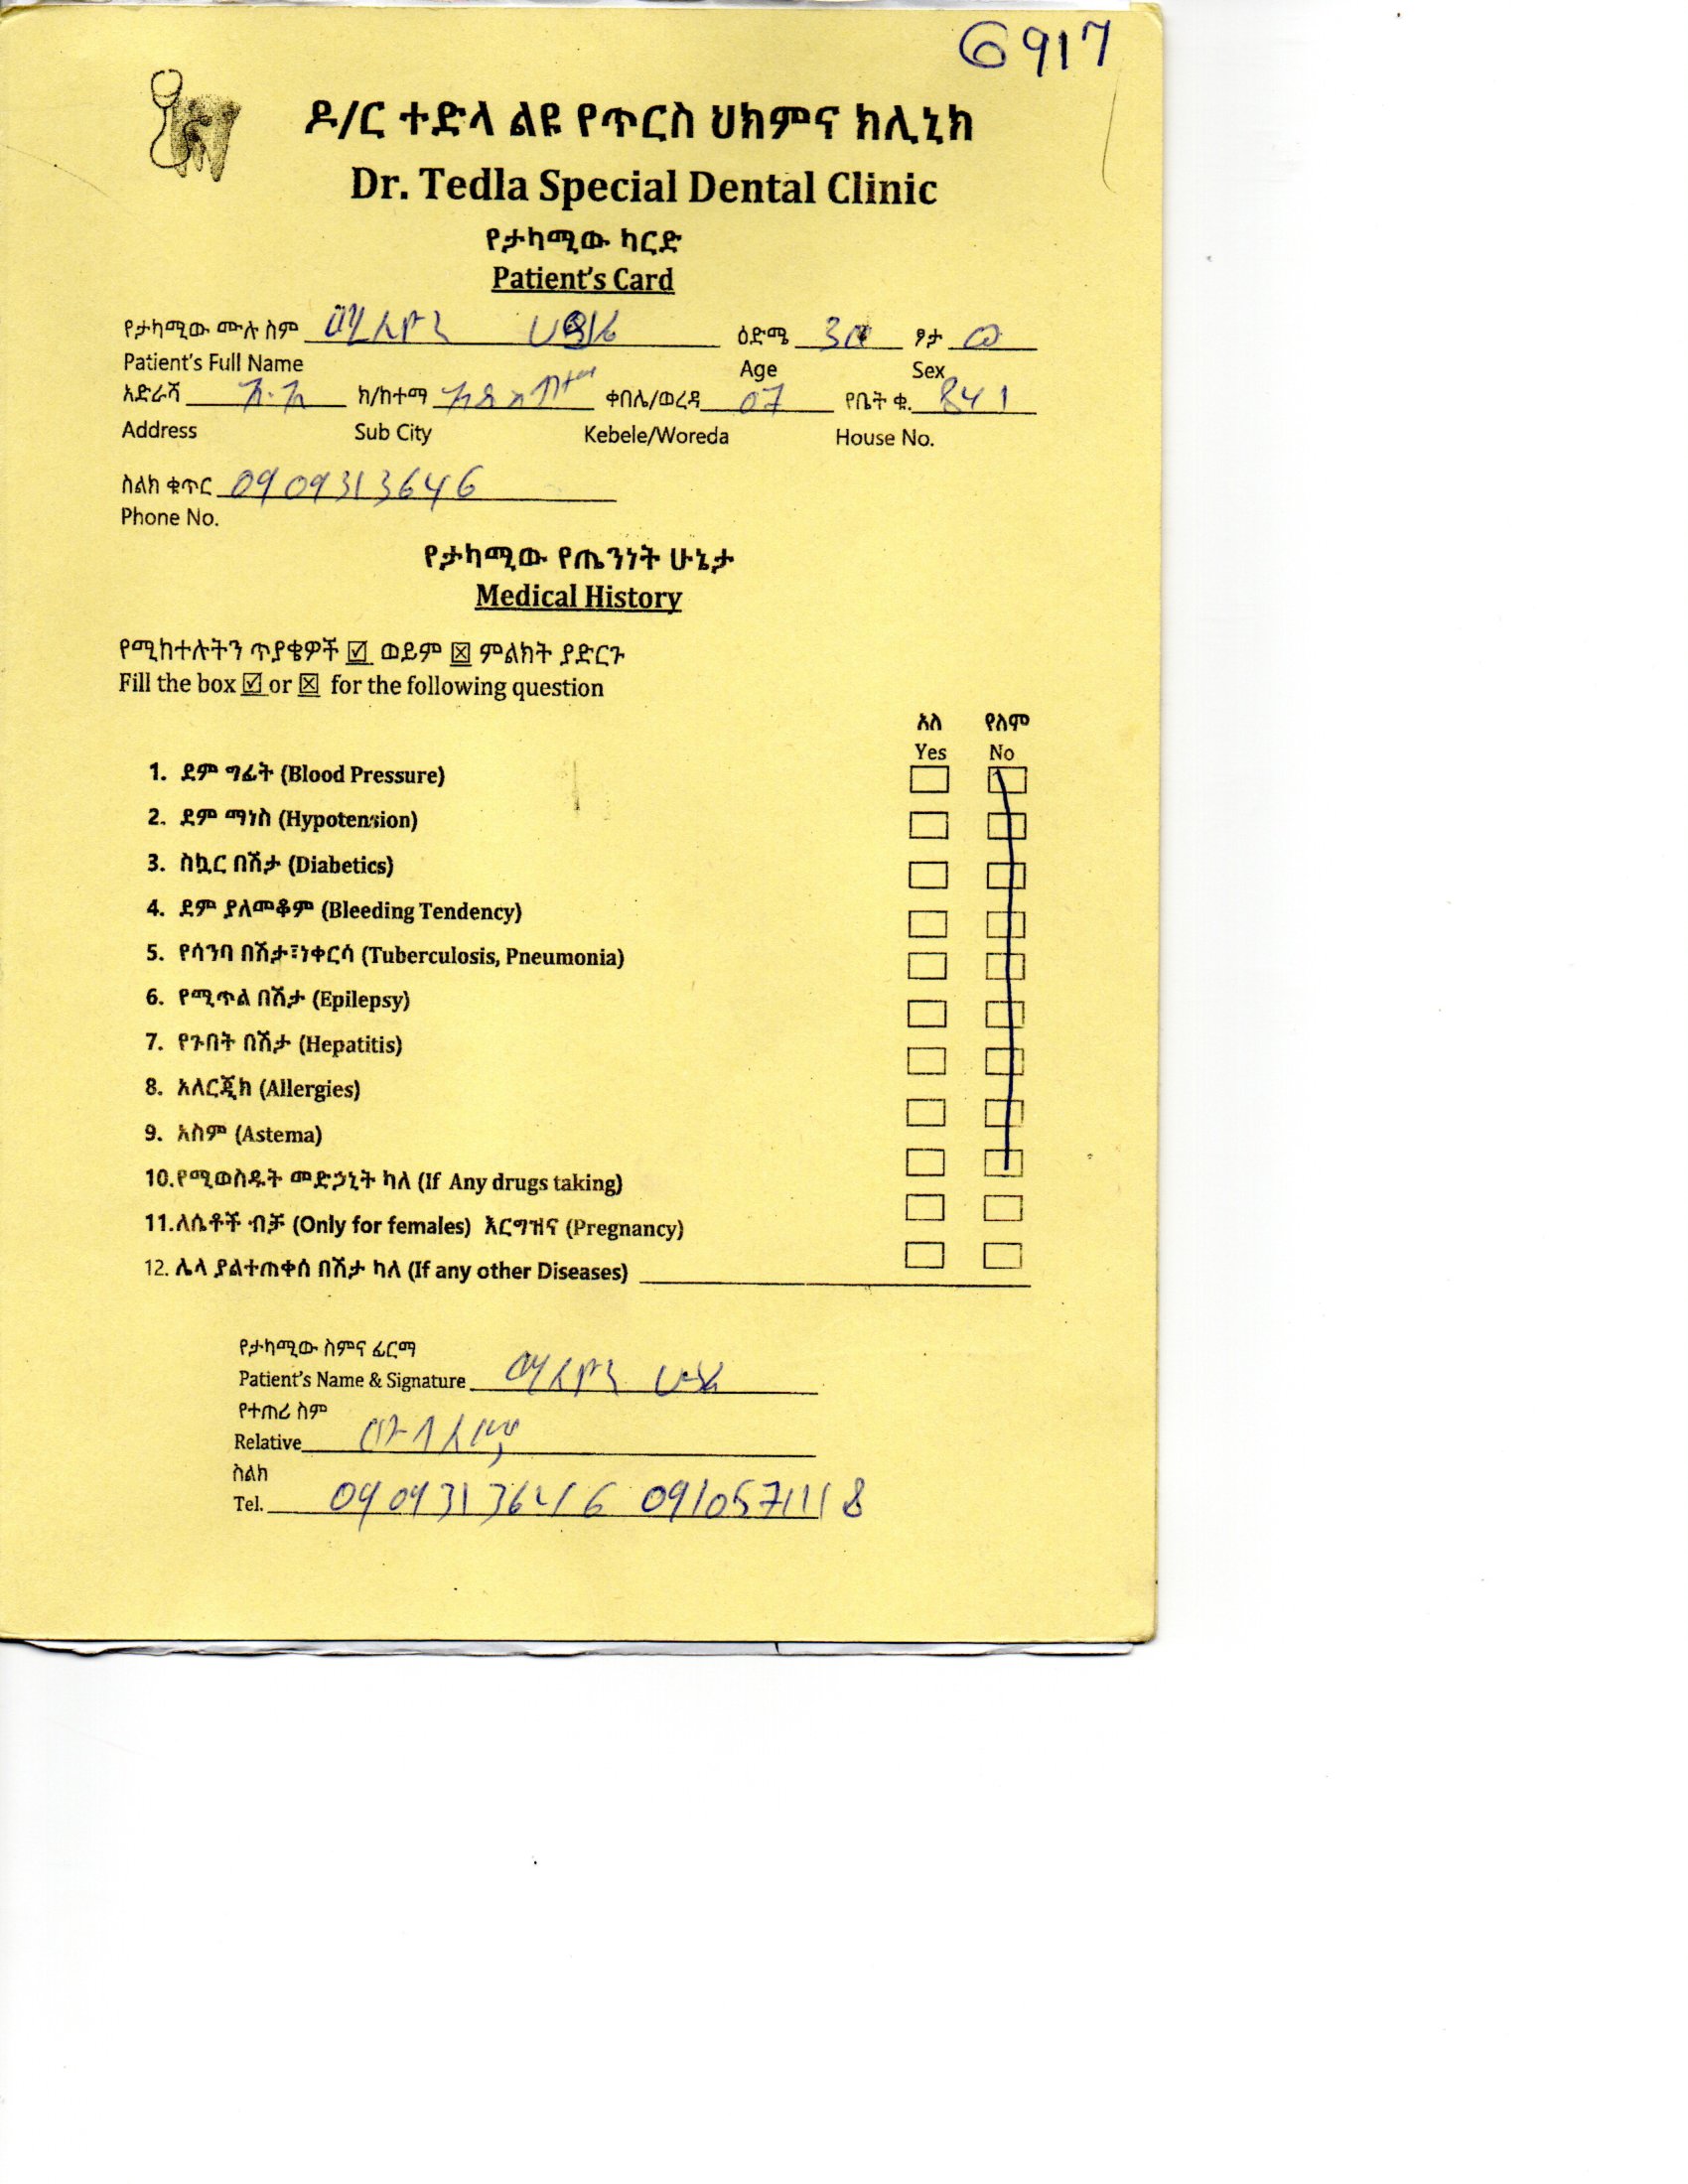 6917
ዶ/ር ተድላ ልዩ የጥርስ ህክምና ክሊኒክ
Dr. Tedla Special Dental Clinic
የታካሚው ካርድ
Patient's Card
የታካሚው ሙሉ ስም ሚሊዮን ዕድሜ ፆታ ወ
Patient's Full Name Age Sex
አድራሻ አ.አ ክ/ከተማ ቀበሌ/ወረዳ 07 የቤት ቁ. 841
Address Sub City Kebele/Woreda House No.
ስልክ ቁጥር 0909313646
Phone No.
የታካሚው የጤንነት ሁኔታ
Medical History
የሚከተሉትን ጥያቄዎች ☑ ወይም ☒ ምልክት ያድርጉ
Fill the box ☑ or ☒ for the following question
አለ የለም
Yes No
1. ደም ግፊት (Blood Pressure)
2. ደም ማነስ (Hypotension)
3. ስኳር በሽታ (Diabetics)
4. ደም ያለመቆም (Bleeding Tendency)
5. የሳንባ በሽታ፣ነቀርሳ (Tuberculosis, Pneumonia)
6. የሚጥል በሽታ (Epilepsy)
7. የጉበት በሽታ (Hepatitis)
8. አለርጂክ (Allergies)
9. አስም (Astema)
10.የሚወስዱት መድኃኒት ካለ (If Any drugs taking)
11.ለሴቶች ብቻ (Only for females) እርግዝና (Pregnancy)
12. ሌላ ያልተጠቀሰ በሽታ ካለ (If any other Diseases)
የታካሚው ስምና ፊርማ
Patient's Name & Signature ሚሊዮን
የተጠሪ ስም
Relative
ስልክ
Tel. 0909313646 0910571118